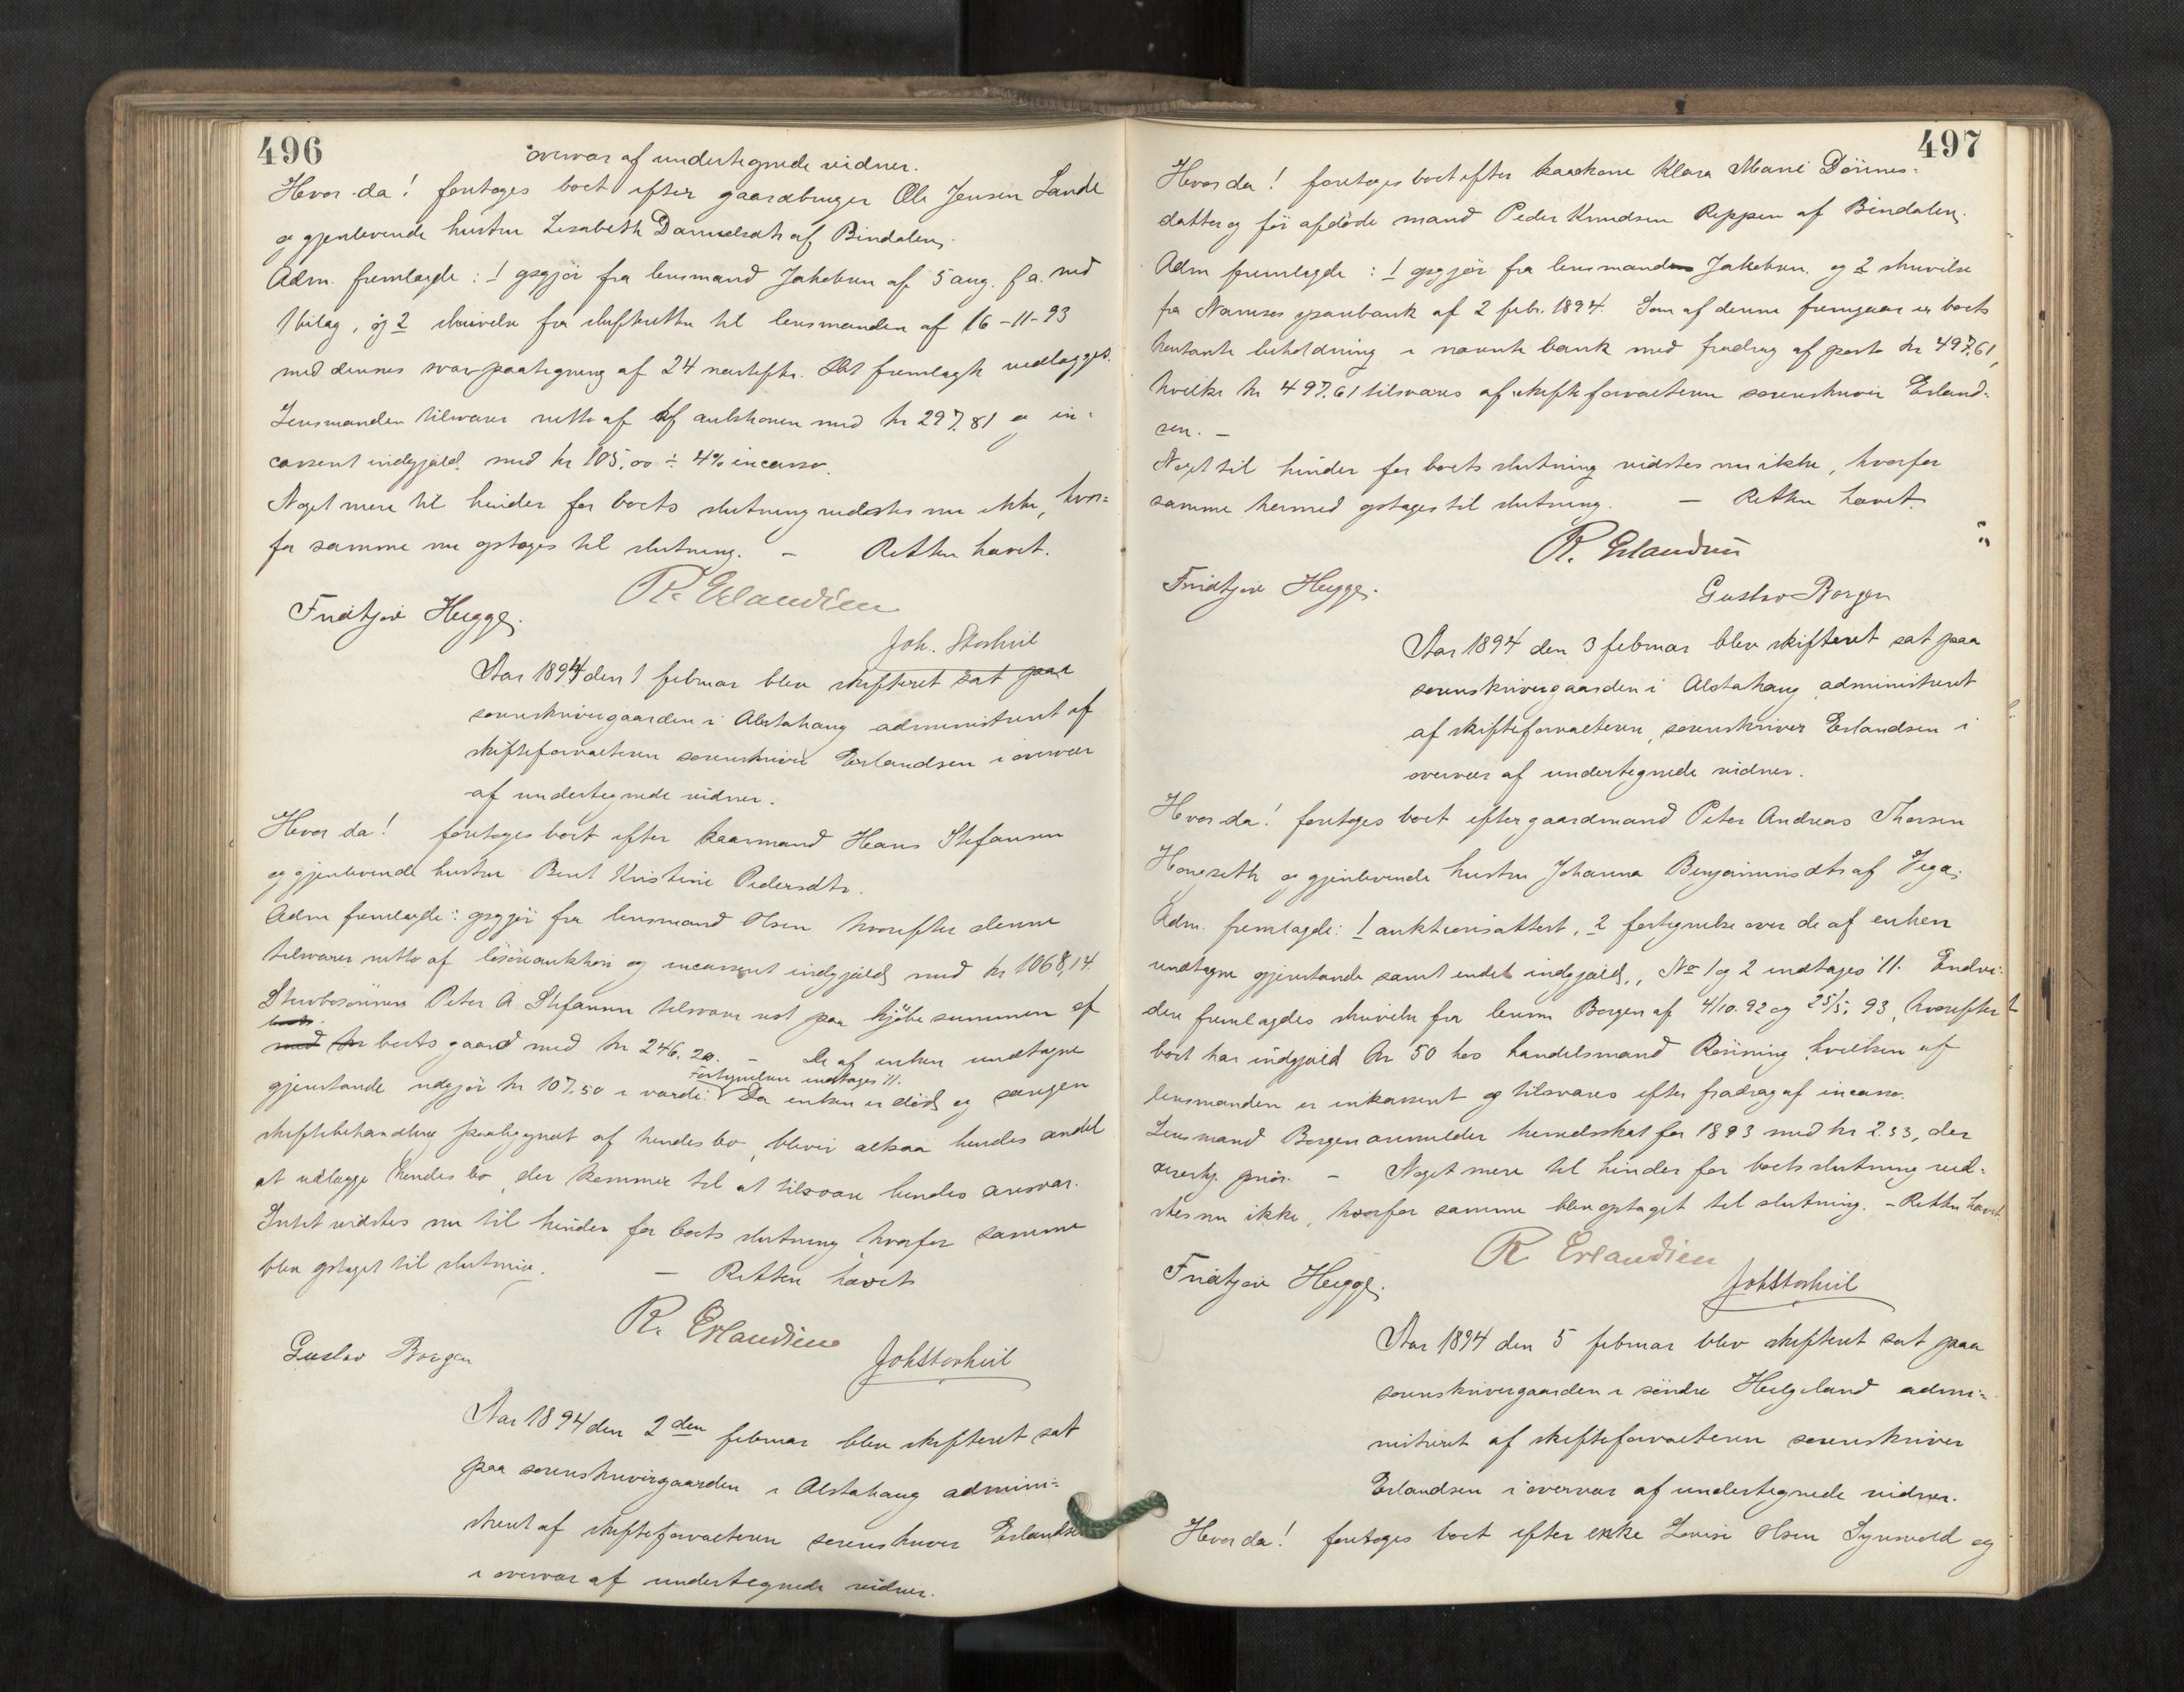 496
overvær af undertegnede vidner.
Hvor da! foretoges boet efter gaardbruger Ole Jensen Sande
og gjenlevende hustru Lisabeth Danielsdtr af Bindalen.
Adm. fremlagde: 1 opgjør fra lensmand Jakobsen af 5 aug. f.a. med
1 bilag, og 2 skrivelse fra skifteretten til lensmanden af 16-11-93
med dennes svarpaategning af 24 næstefter. Det fremlagte vedlægges.
Lensmanden tilsvarer netto af auktionen med kr 297.81 og in-
cassert indgjæld med kr 105,00 ÷ 4% incasso.
Noget mere til hinder for boets slutning vidstes nu ikke, hvor-
for samme nu optages til slutning. – Retten hævet.
R. Erlandsen
Fridtjov Hegge.
Joh. Storheil
Aar 1894 den 1 februar blev skifteret sat paa
sorenskrivergaarden i Alstahaug administreret af
skifteforvalteren sorenskriver Erlandsen i overvær
af undertegnede vidner.
Hvor da! foretoges boet efter kaarmand Hans Stefansen
og gjenlevende hustru Berit Kristine Pedersdtr.
Adm fremlagde: opgjør fra lensmand Olsen hvorefter denne
tilsvarer netto af løsøreauktion og incassert indgjæld med kr 1068,14.
Stervbosønnen Peter A Stefansen tilsvarer rest paa kjøbesummen af
boets
med kr boets gaard med kr 246.20. – De af enken undtagne
Fortegnelsen indtages 11.
gjenstande udgjør kr 107.50 i værdi. Da enken er død og særgen
skiftebehandling paabegyndt af hendes bo, blever altsaa hendes andel
at udlægge hendes bo, der kommer til at tilsvare hendes ansvar.
Intet vidstes nu til hinder for boets slutning hvorfor samme
blev optaget til slutning. – Retten hævet
R. Erlandsen
Gustav Borgen
Joh Storheil
Aar 1894 den 2den februar blev skifteret sat
paa sorenskrivergaarden i Alstahaug admini-
streret af skifteforvalteren sorenskriver Erlandsen
i overvær af undertegnede vidner.
497
Hvor da! foretoges boet efter kaarkone Klara Marie Dønnes-
datter og før afdøde mand Peder Knudsen Reppen af Bindalen.
Adm fremlagde: 1 opgjør fra lensmand Jakobsen. og 2 skrivelse
fra Namsos sparebank af 2 febr. 1894. Som af denne fremgaar er boets
kontante beholdning i nævnte bank med fradrag af porto kr 497.61,
hvilke kr 497.61 tilsvares af skifteforvalteren sorenskriver Erland-
sen. –
Noget til hinder for boets slutning vidstes nu ikke, hvorfor
samme hermed optages til slutning. – Retten hævet.
R. Erlandsen
Fridtjov Hegge.
Gustav Borgen
Aar 1894 den 3 februar blev skifteret sat paa
sorenskrivergaarden i Alstahaug administreret
af skifteforvalteren, sorenskriver Erlandsen i
overvær af undertegnede vidner.
Hvor da! foretoges boet efter gaardmand Peter Andreas Thorsen
Hongseth og gjenlevende hustru Johanna Benjaminsdtr af Vega.
Adm. fremlagde: 1 auktionsattest, 2 fortegnelse over de af enken
undtagne gjenstande samt endel indgjæld, No 1 og 2 indtages 11. Endvi-
dere fremlagdes skrivelse fra lensm Borgen af 4/10.92 og 25/5.93, hvorefter
boet har indgjæld kr 50 hos handelsmand Rønning hvilken af
lensmanden er inkassert og tilsvares efter fradrag af incasso.
Lensmand Borgen anmelder herredsskat for 1893 med kr 2.33, der
prior. – Noget mere til hinder for boets slutning vid-
stes nu ikke, hvorfor samme blev optaget til slutning. – Retten hævet.
R Erlandsen
Fridtjov Hegge.
Joh Storheil
Aar 1894 den 5 februar blev skifteret sat paa
sorenskrivergaarden i søndre Helgeland admi-
nistreret af skifteforvalteren sorenskriver
Erlandsen i overvær af undertegnede vidner.
Hvor da! foretoges boet efter enke Lovise Olsen og